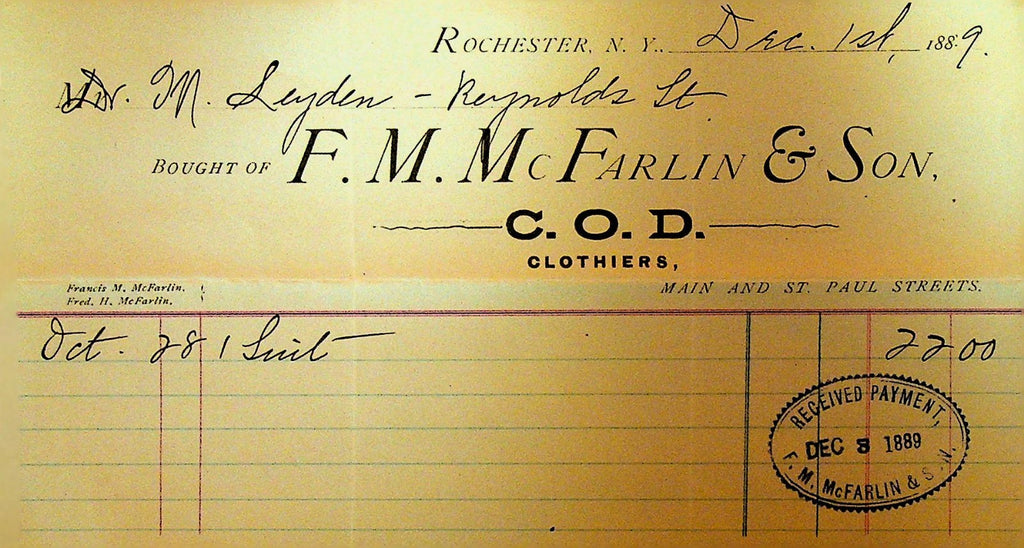 ROCHESTER, N. Y., Dec. 1st, 1889.
Dr. M. Leyden - Reynolds St
BOUGHT OF F. M. MCFARLIN & SON,
C. O. D.
CLOTHIERS,
Francis M. McFarlin.
Fred. H. McFarlin.
MAIN AND ST. PAUL STREETS.
Oct. 28 1 Suit 22 00
RECEIVED PAYMENT,
DEC 3 1889
F. M. McFARLIN & S N.